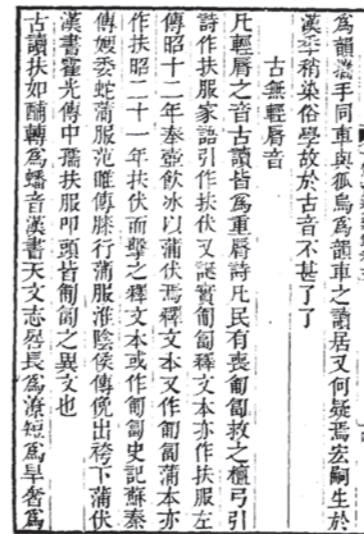 爲韻攜手同車與狐烏爲韻車之讀居又何疑焉宏嗣生於
漢季稍染俗學故於古音不甚了了
古無輕脣音
凡輕脣之音古讀皆爲重脣詩凡民有喪匍匐救之檀弓引
詩作扶服家語引作扶伏又誕實匍匐釋文本亦作扶服左
傳昭十二年奉壺飲冰以蒲伏焉釋文本又作匍匐蒲本亦
作扶昭二十一年扶伏而擊之釋文本或作匍匐史記蘇秦
傳嫂委蛇蒲服范雎傳膝行蒲服淮陰侯傳俛出袴下蒲伏
漢書霍光傳中孺扶服叩頭皆匍匐之異文也
古讀扶如酺轉爲蟠音漢書天文志晷長爲潦短爲旱奢爲